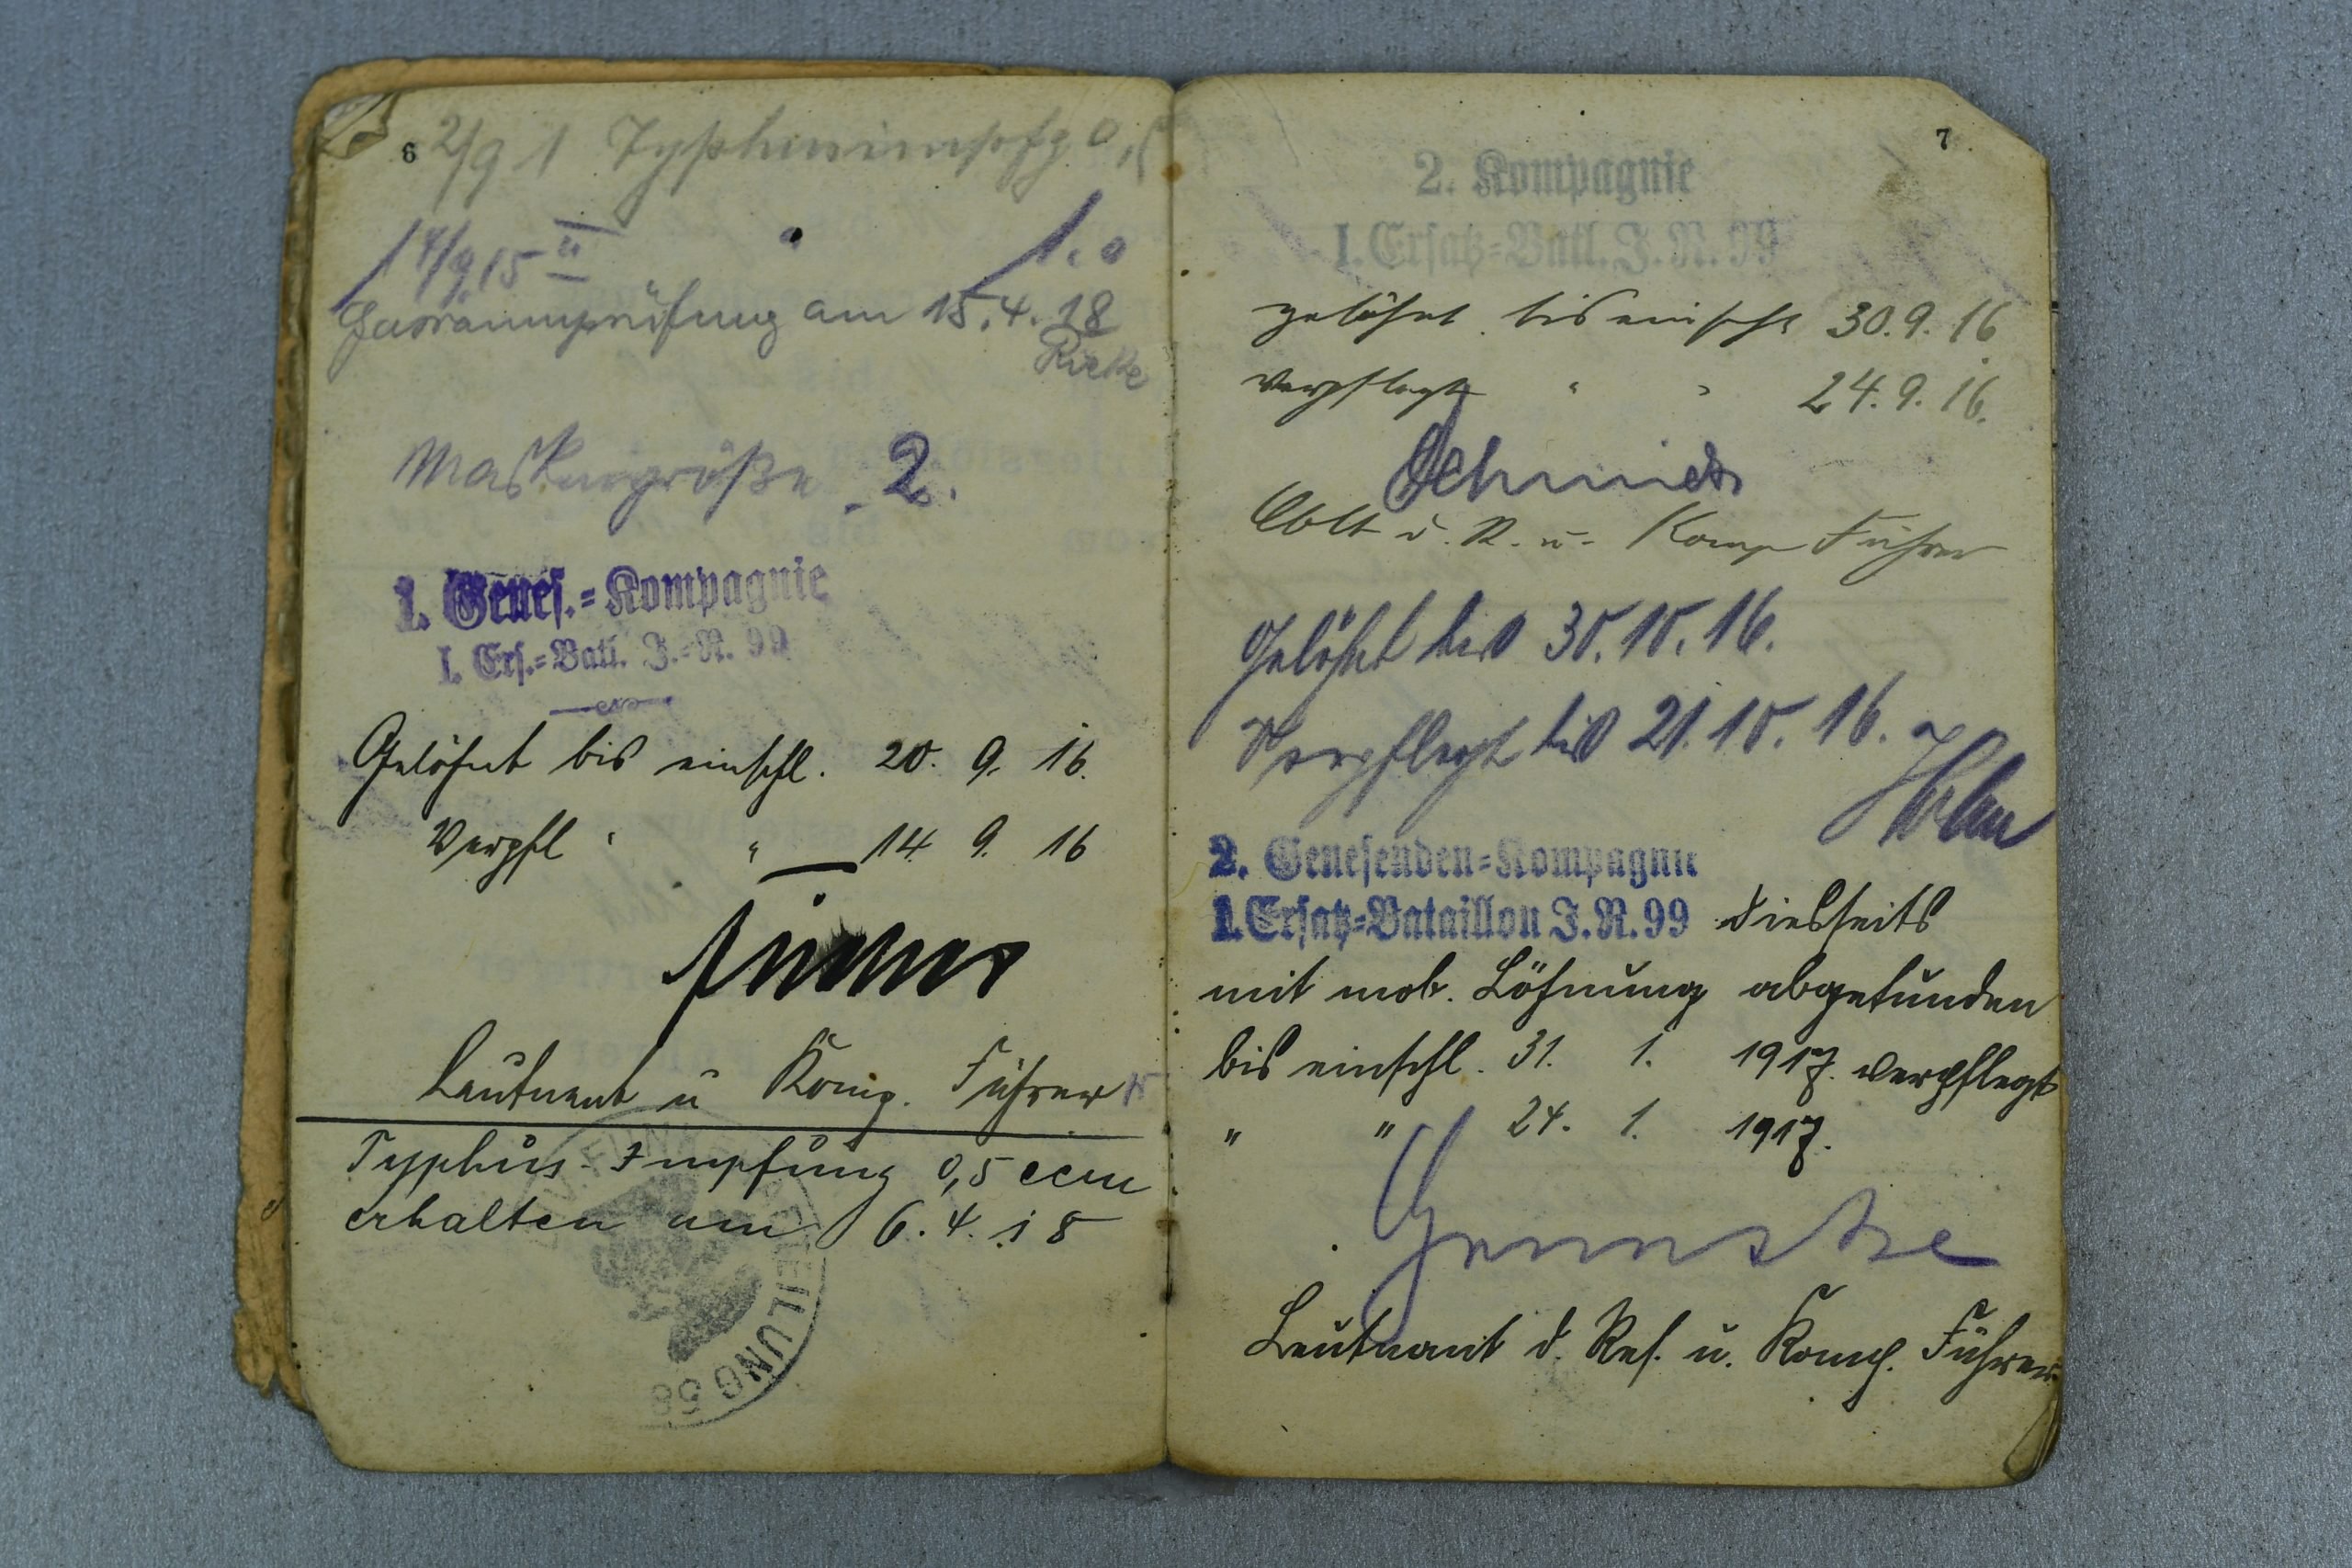 6 2/9 1 Typhusimpfg 0,5
14/9 15 II " 1.0
Gasraumprüfung am 15.4.18
Rieke
Maskengröße 2.
1. Genes.=Kompagnie
I. Ers.=Batl. J.=R. 99
Gelöhnt bis einschl. 20. 9. 16.
Verpfl " " 14. 9. 16
Leutnant u Komp. Führer
Typhus-Impfung 0,5 ccm
erhalten am 6.4.18
EILUNG 58
7
2. Kompagnie
I. Ersatz=Batl. J. R. 99
gelöhnt bis einschl 30.9.16
verpflegt " " 24.9.16.
Schmidt
Oblt d. R. u. Komp Führer
Gelöhnt bis 30.10.16.
Verpflegt bis 21.10.16.
2. Genesenden=Kompagnie
1. Ersatz=Bataillon J. R. 99 diesseits
mit mob. Löhnung abgefunden
bis einschl. 31. 1. 1917. verpflegt
" " 24. 1. 1917.
Leutnant d. Res. u. Komp. Führer